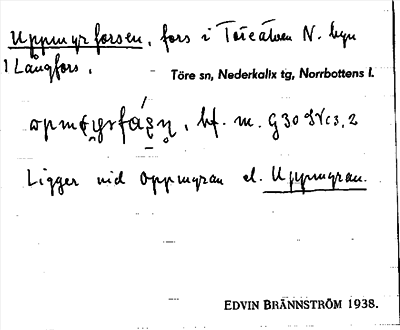 Uppmyrforsen, fors i Töreälven N. byn
i Långfors.
Töre sn, Nederkalix tg, Norrbottens l.
bf. m. G30
Ligger vid Oppmyran el. Uppmyran.
EDVIN BRÄNNSTRÖM 1938.